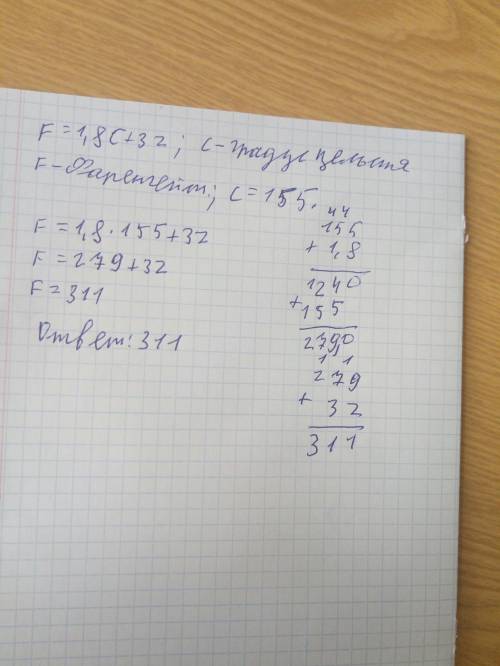 F = 1,8C+32; C-градус цельсия
F-Фаренгейт; C = 155.
F = 1,8 · 155 + 32
F = 279 + 32
F = 311
Ответ: 311
44
155
+ 1,8
1240
+ 155
2790
1 1
279
+ 32
311